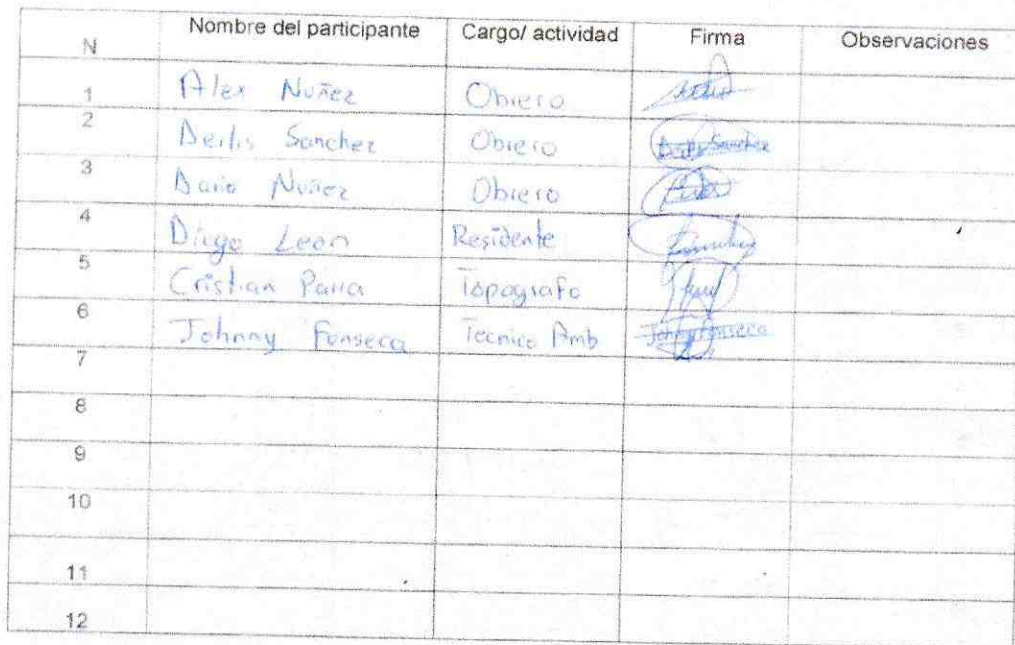 N Nombre del participante Cargo/ actividad Firma Observaciones
1 Alex Nuñez Obrero
2 Deilis Sanchez Obrero Sanchez
3 Dario Nuñez Obrero
4 Diego Leon Residente
5 Cristian Parra Topografo
6 Johnny Fonseca Tecnico Amb Johnny Fonseca
7
8
9
10
11
12